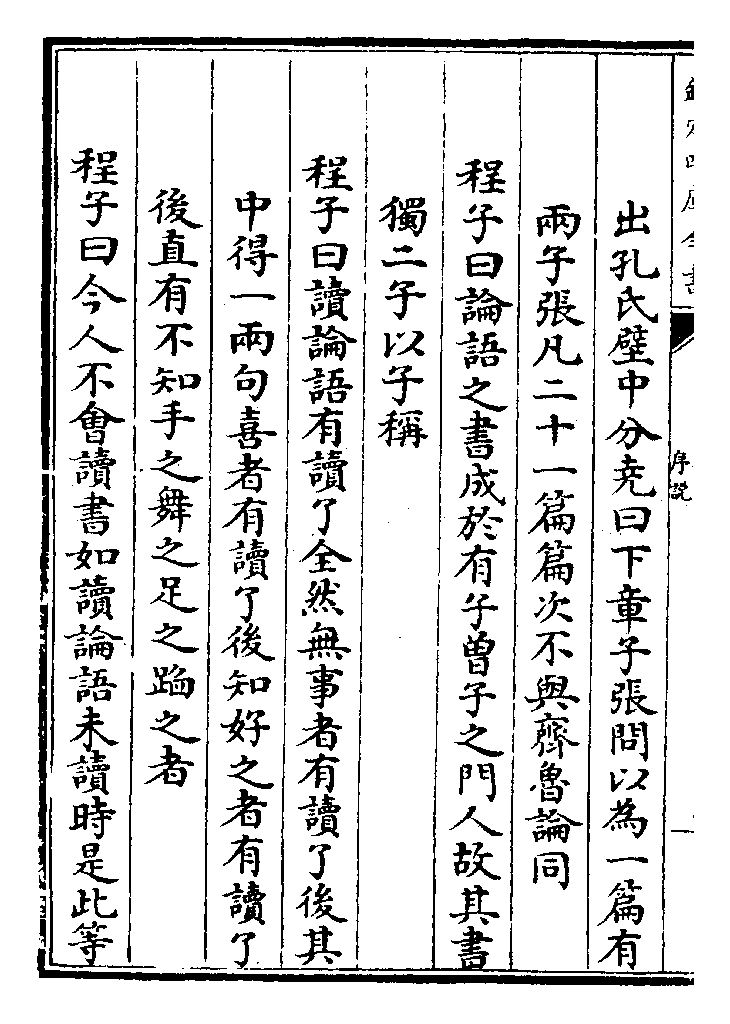 欽定四庫全書
序說
一
出孔氏壁中分堯曰下章子張問以為一篇有
兩子張凡二十一篇篇次不與齊魯論同
程子曰論語之書成於有子曽子之門人故其書
獨二子以子稱
程子曰讀論語有讀了全然無事者有讀了後其
中得一兩句喜者有讀了後知好之者有讀了
後直有不知手之舞之足之蹈之者
程子曰今人不㑹讀書如讀論語未讀時是此等